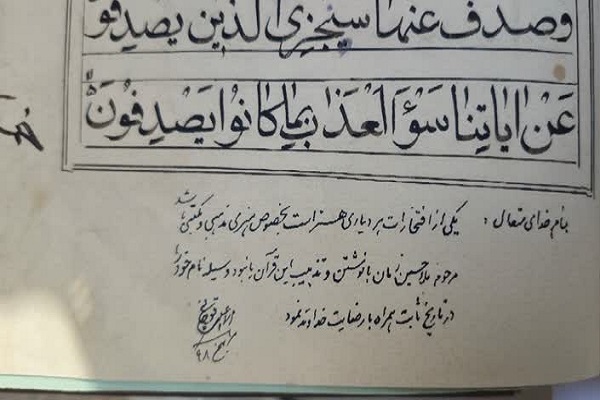 وَصَدَفَ عَنْهَا سَنَجْزِی الَّذِینَ یَصْدِفُو
عَنْ اٰیَاتِنَا سُوۤءَ الْعَذَابِ بِمَا کَانُوا یَصْدِفُونَ
بنام خدای متعال : یکی از افتخارات هر دیاری هنر است بخصوص هنری مذهبی و مکتبی باشد
مرحوم ملا حسین زمان با نوشتن و تذهیب این قرآن با نبود وسیله نام خود را
در تاریخ ثابت همراه با رضایت خداوند نمود